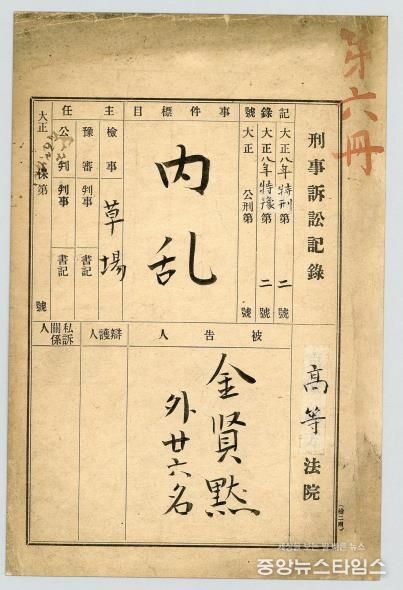 第六冊
刑事訴訟記錄
高等法院
記錄號
大正八年特刑第二號
大正八年特豫第二號
大正 公刑第 號
事件標目
内乱
主任
檢事 草場
豫審判事 書記
公判判事 書記
大正 保第 號
被告人
金賢黙
外廿六名
辯護人
私訴關係人
중앙뉴스타임스